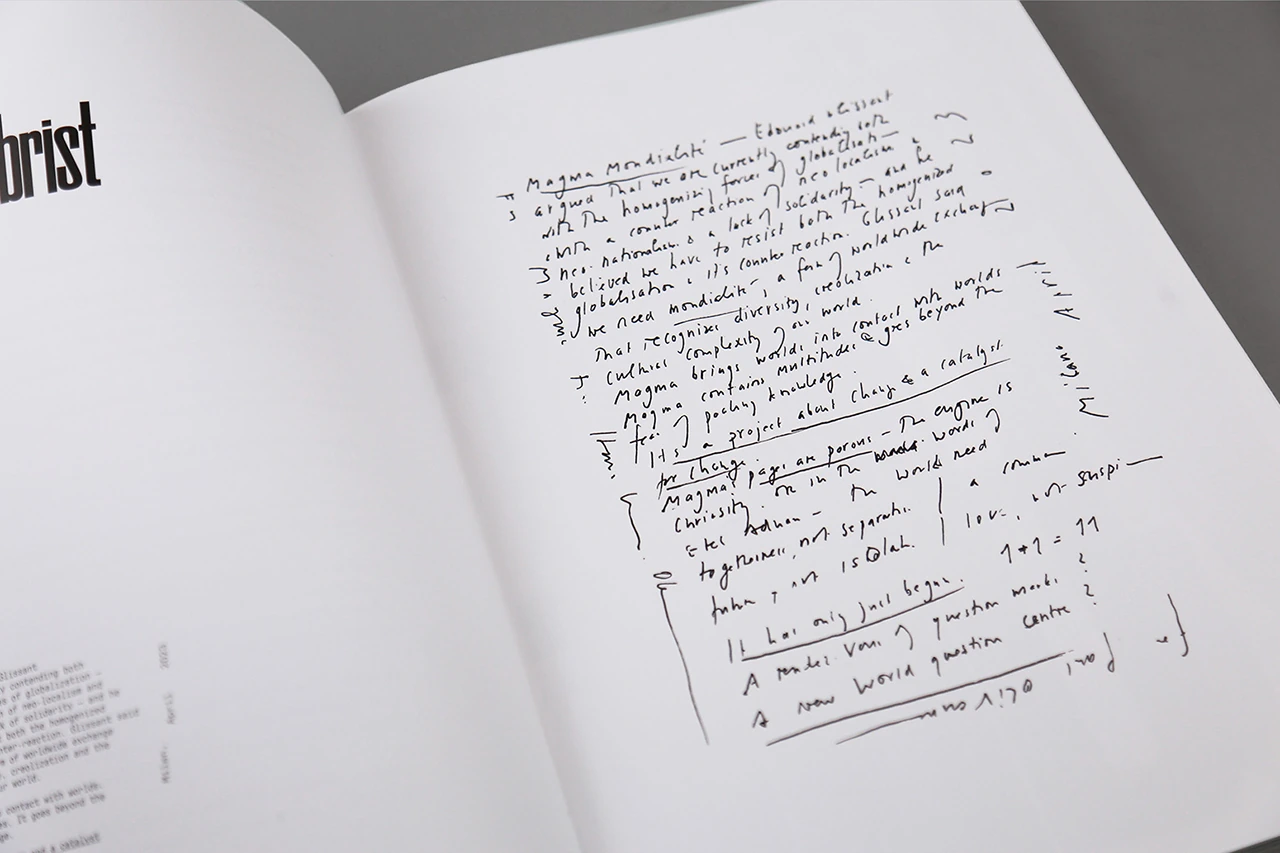 brist
Glissant
y contending both
es of globalization —
n of neo-localism and
k of solidarity — and he
both the homogenized
nter-reaction. Glissant said
e of worldwide exchange
, creolization and the
r world.
contact with worlds.
es. It goes beyond the
ge.
and a catalyst
Milan, April 2023
Magma Mondialité — Edouard Glissant
argued that we are currently contending both
with the homogenizing forces of globalisati—
with a counter reaction of neo localism &
neo. nationalism & a lack of solidarity — and he
believed we have to resist both the homogenized
globalisation & it's counter reaction. Glissant said
we need mondialité, a form of worldwide exchange
that recognizes diversity, creolization & the
cultural complexity of our world.
Magma brings worlds into contact with worlds
Magma contains multitudes & goes beyond the
fear of pooling knowledge.
It's a project about change & a catalyst
for change.
Magma's pages are porous — The engine is
Curiosity. or in the words of
Etel Adnan — the world need
togetherness, not separation. love, not suspi—
a common
future, not isolat.
It has only just begun. 1+1=11
A rendez vous of question marks ?
A new world question centre ?
Milano
April